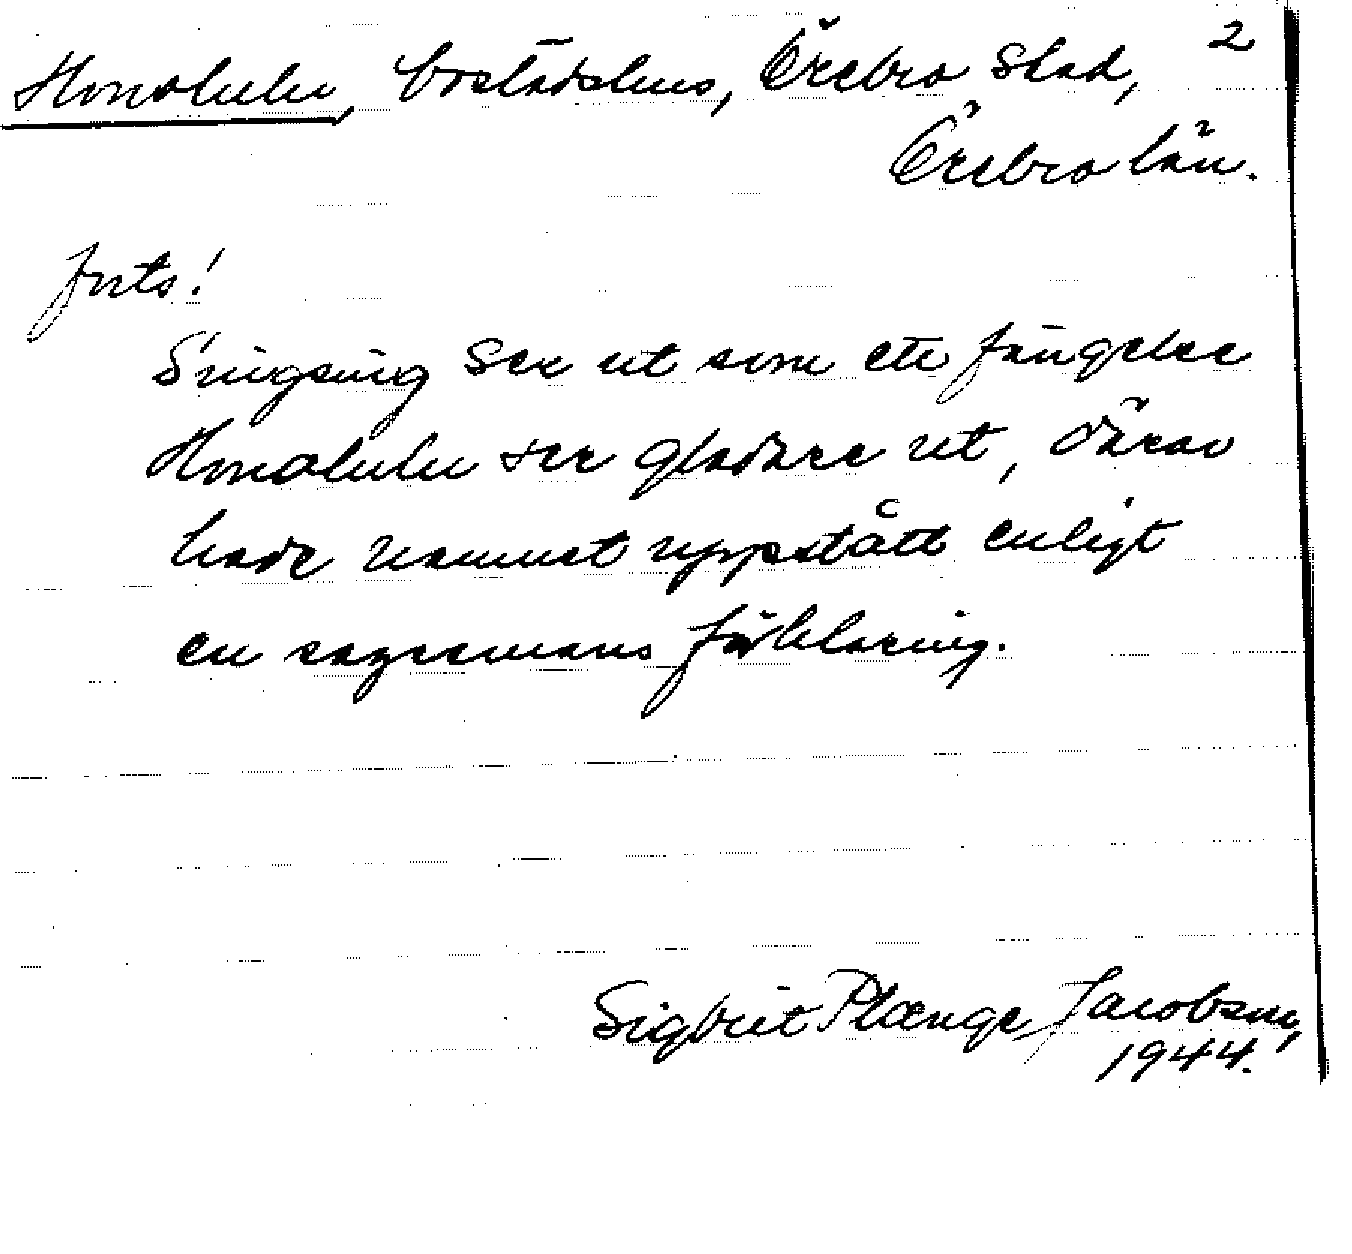 2
Honolulu, bostadshus, Örebro stad,
Örebro län.
forts!
Singsing ser ut som ett fängelse
Honolulu ser gladare ut, därav
hade namnet uppstått enligt
en sagesmans förklaring.
Sigbrit Plænge Jacobson,
1944.